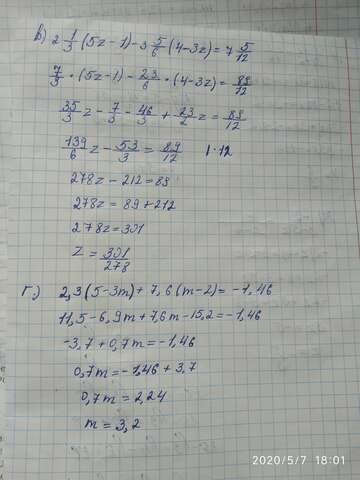 в) 2 1/3 (5z-1)-3 5/6 (4-3z)=7 5/12
7/3 · (5z-1)- 23/6 · (4-3z)= 89/12
35/3 z - 7/3 - 46/3 + 23/2 z = 89/12
139/6 z - 53/3 = 89/12 | · 12
278z - 212 = 89
278z = 89 + 212
278z = 301
z = 301/278
г.) 2,3(5-3m)+7,6(m-2)=-1,46
11,5-6,9m+7,6m-15,2=-1,46
-3,7+0,7m=-1,46
0,7m=-1,46+3,7
0,7m=2,24
m=3,2
2020/5/7 18:01